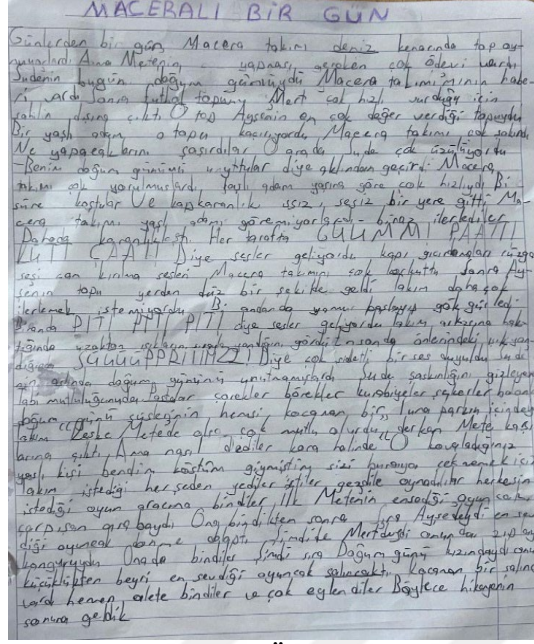 MACERALI BİR GÜN
Günlerden bir gün, Macera takımı deniz kenarında top oy-
nuyorlardı Ama Metenin yapması gereken çok ödevi vardı
Sudenin bugün doğum günüydü Macera takımı'nın habe-
ri vardı Sonra topunu Mert çok hızlı vurduğu için
sahilin dışına çıktı O top Ayşenin en çok değer verdiği topuydu
Bir yaşlı adam o topu kaçırıyordu Macera takımı çok
Ne yapacaklarını şaşırdılar O arada Sude çok üzülüyordu
-Benim doğum günümü unuttular diye aklından geçirdi Macera
takımı çok yorulmuşlardı yaşlı adam yaşına göre çok hızlıydı Bi
süre koştular Ve kapkaranlık ıssız, sessiz bir yere gitti Ma-
cera takımı yaşlı adamı göremiyorlardı biraz ilerlediler
Dahada karanlıklaştı Her tarafta GÜÜMM! PAATT!
ÇAAT! Diye sesler geliyordu kapı gıcırdamaları rüzgar
sesi cam kırılma sesleri Macera takımını çok korkuttu Sonra Ay-
şenin topu yerden düz bir şekilde geldi takım daha çok
ilerlemek istemiyordu Bi andanda yağmur başlayıp gök gürledi
Bianda PITI PITI PITI diye sesler geliyordu takım arkasına bak-
tığında uzaktan ışıkların yandığını gördü
SÜÜÜÜPPRİİİZZ! Diye çok şiddetli bir ses duyuldu Sude
aslında doğum gününü unutmamışlardı Sude şaşkınlığını gizleyen
mutluluğunuda Pastalar çörekler börekler kurabiyeler şekerler balon
doğum günü süslerinin hepsi, kocaman bir Luna parkın içindey
takım Keşke Metede olsa çok mutlu olurdu derken Mete
çıktı, Ama nasıl dediler koro halinde "O kovaladığınız
yaşlı kişi bendim kostüm giymiştim sizi buraya çekmek için
Takım istediği herşeden yediler içtiler gezdile oynadılar herkesin
istediği oyun aracına bindiler İlk Metenin en sevdiği oyuncak
çarpışan arabaydı Ona bindikten sonra sıra Ayşedeydi en sev
diği oyuncak dönme dolaptı Şimdide Mertdeydi onunda
Onada bindiler Şimdi sıra Doğum günü kızındaydı onun
küçüklükten beyri en sevdiği oyuncak salıncaktı kocaman bir salınc
vardı hemen bindiler ve çok eğlendiler Böylece hikayenin
sonuna geldik